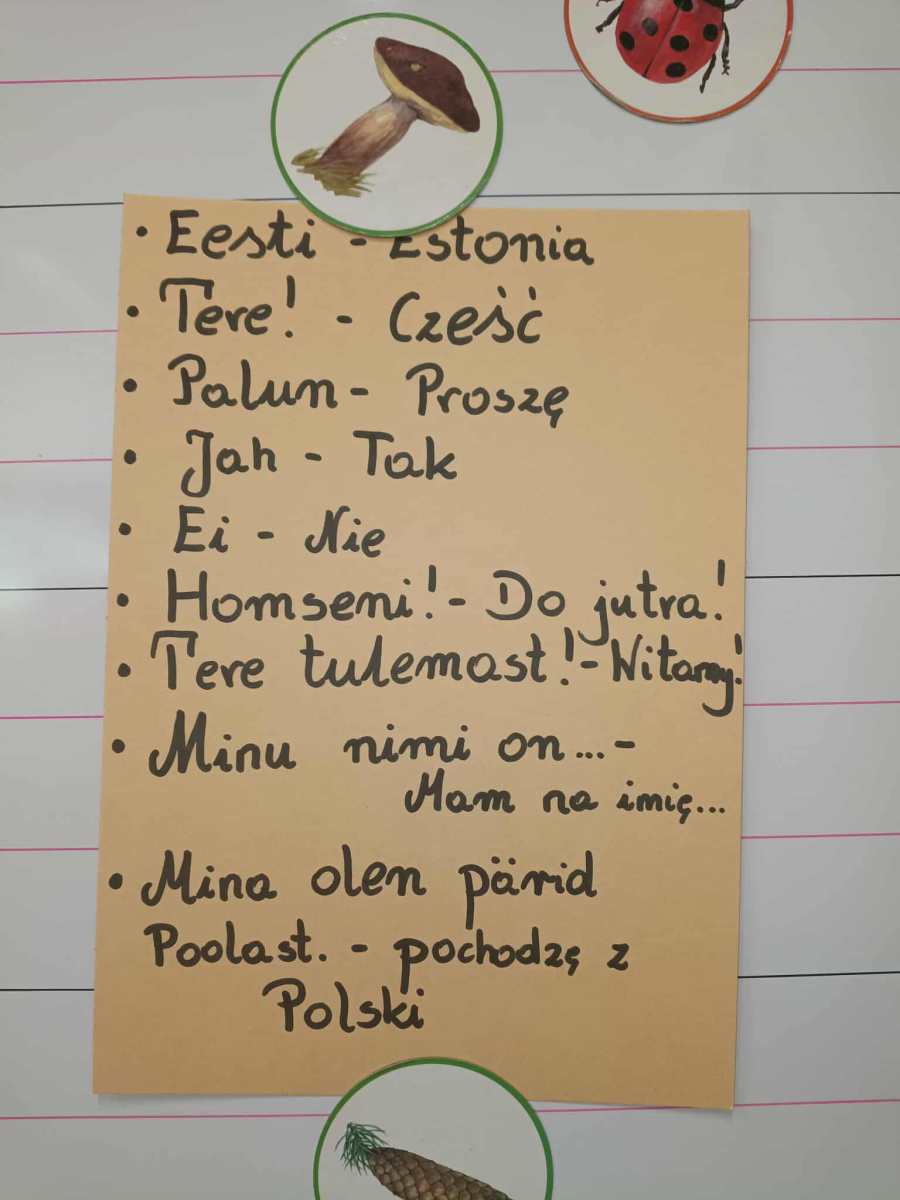 • Eesti - Estonia
• Tere! - Cześć
• Palun - Proszę
• Jah - Tak
• Ei - Nie
• Homseni! - Do jutra!
• Tere tulemast! - Witamy!
• Minu nimi on... -
Mam na imię...
• Mina olen pärid
Poolast. - pochodzę z
Polski